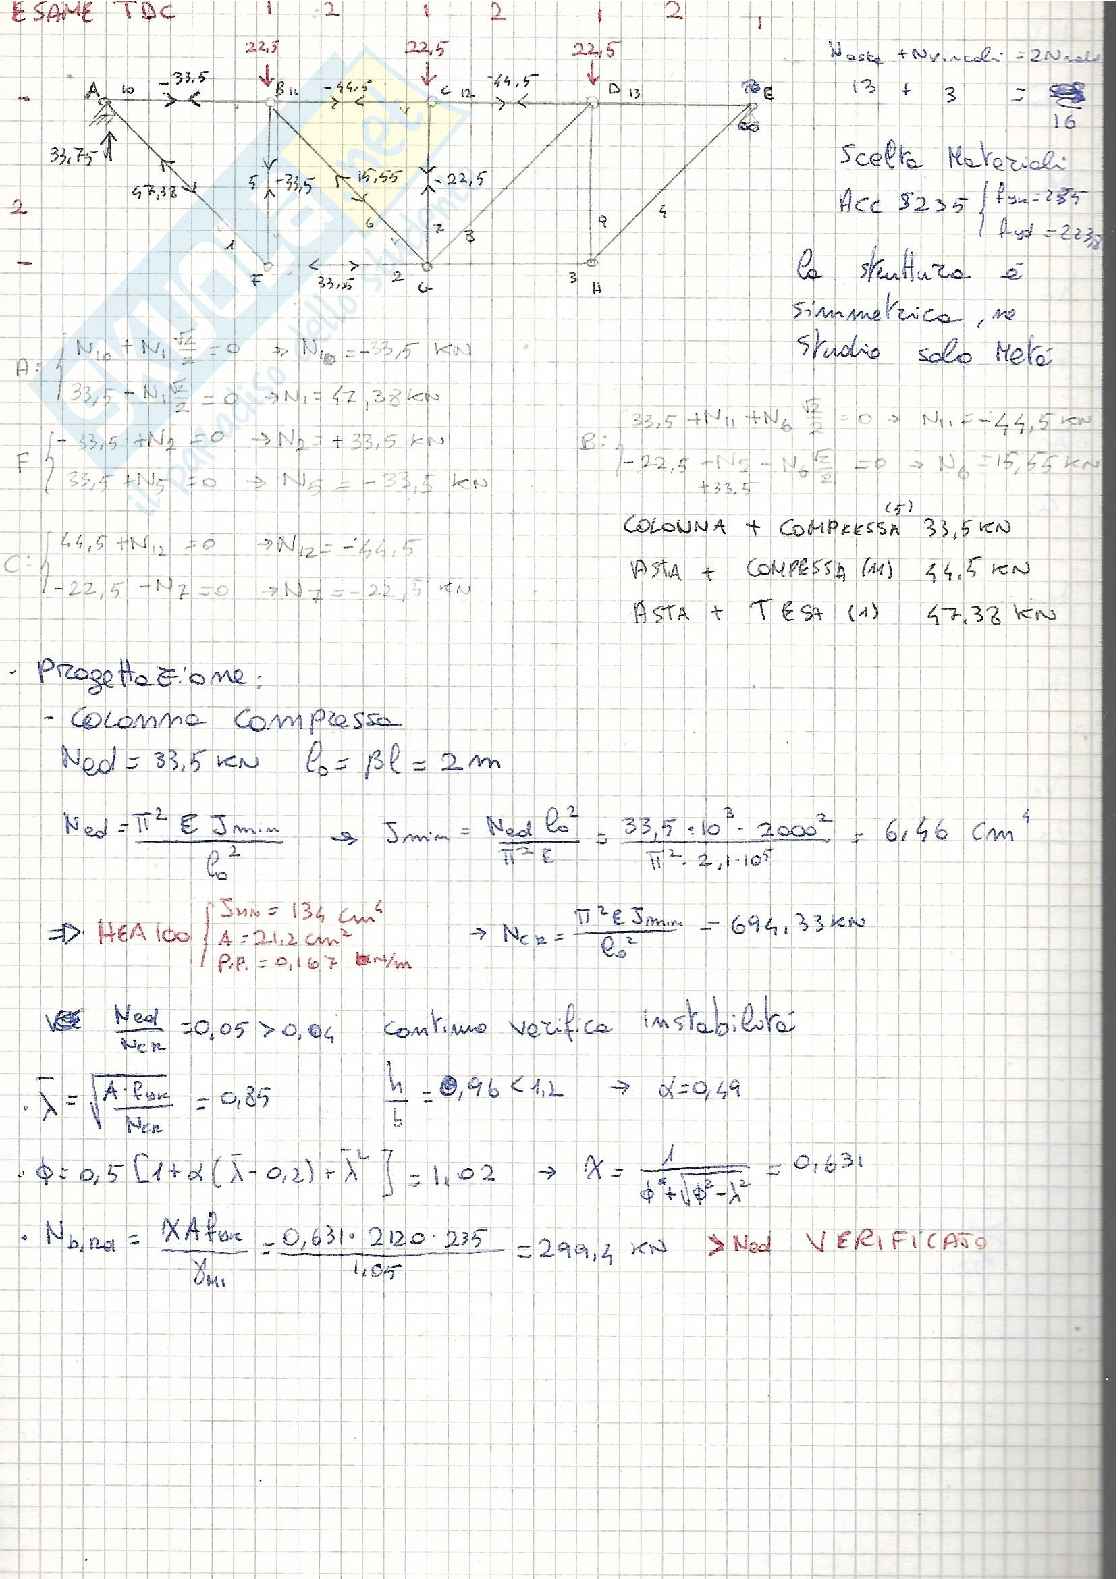 ESAME TDC
1 2 1 2 1 2 1
22,5 22,5 22,5
Naste + Nvincoli = 2Nnodi
13 + 3 =
16
A 10 -33,5 B 11 -44,5 C 12 -44,5 D 13 E
33,75
47,38 5 -33,5 15,55 -22,5
2
1 6 7 8 9 4
F 33,5 2 G 3 H
Scelta Materiali
Acc S235 { fyk = 235
fyd = 223,8
la struttura è
simmetrica, ne
studio solo Metà
A: { N10 + N1 √2/2 = 0 → N10 = -33,5 KN
33,5 - N1 √2/2 = 0 → N1 = 47,38 KN
F { -33,5 + N2 = 0 → N2 = +33,5 KN
33,5 + N5 = 0 → N5 = -33,5 KN
B: { 33,5 + N11 + N6 √2/2 = 0 → N11 = -44,5 KN
-22,5 - N5 - N6 √2/2 = 0 → N6 = 15,55 KN
+33.5
C: { 44,5 + N12 = 0 → N12 = -44,5
-22,5 - N7 = 0 → N7 = -22,5 KN
COLONNA + COMPRESSA (5) 33,5 KN
ASTA + COMPESSA (11) 44,5 KN
ASTA + TESA (1) 47.38 KN
- Progettazione:
- Colonna Compressa
Ned = 33,5 KN l0 = βl = 2 m
Ned = π² E Jmin / l0² → Jmin = Ned l0² / π² E = 33,5 · 10³ · 2000² / π² · 2,1 · 10⁵ = 6,46 cm⁴
⇒ HEA 100 { Jmin = 134 cm⁴
A = 21,2 cm²
P.P. = 0,167 KN/m
→ Ncr = π² E Jmin / l0² = 694,33 KN
Ned / Ncr = 0,05 > 0,04 continuo verifica instabilità
· λ̄ = √(A · fyk / Ncr) = 0,85 h/b = 0,96 < 1,2 → α = 0,49
· ϕ = 0,5 [1 + α (λ̄ - 0,2) + λ̄²] = 1,02 → χ = 1 / ϕ + √ϕ² - λ̄² = 0,631
· Nb,Rd = χ A fyk / γM1 = 0,631 · 2120 · 235 / 1,05 = 299,4 KN > Ned VERIFICATO